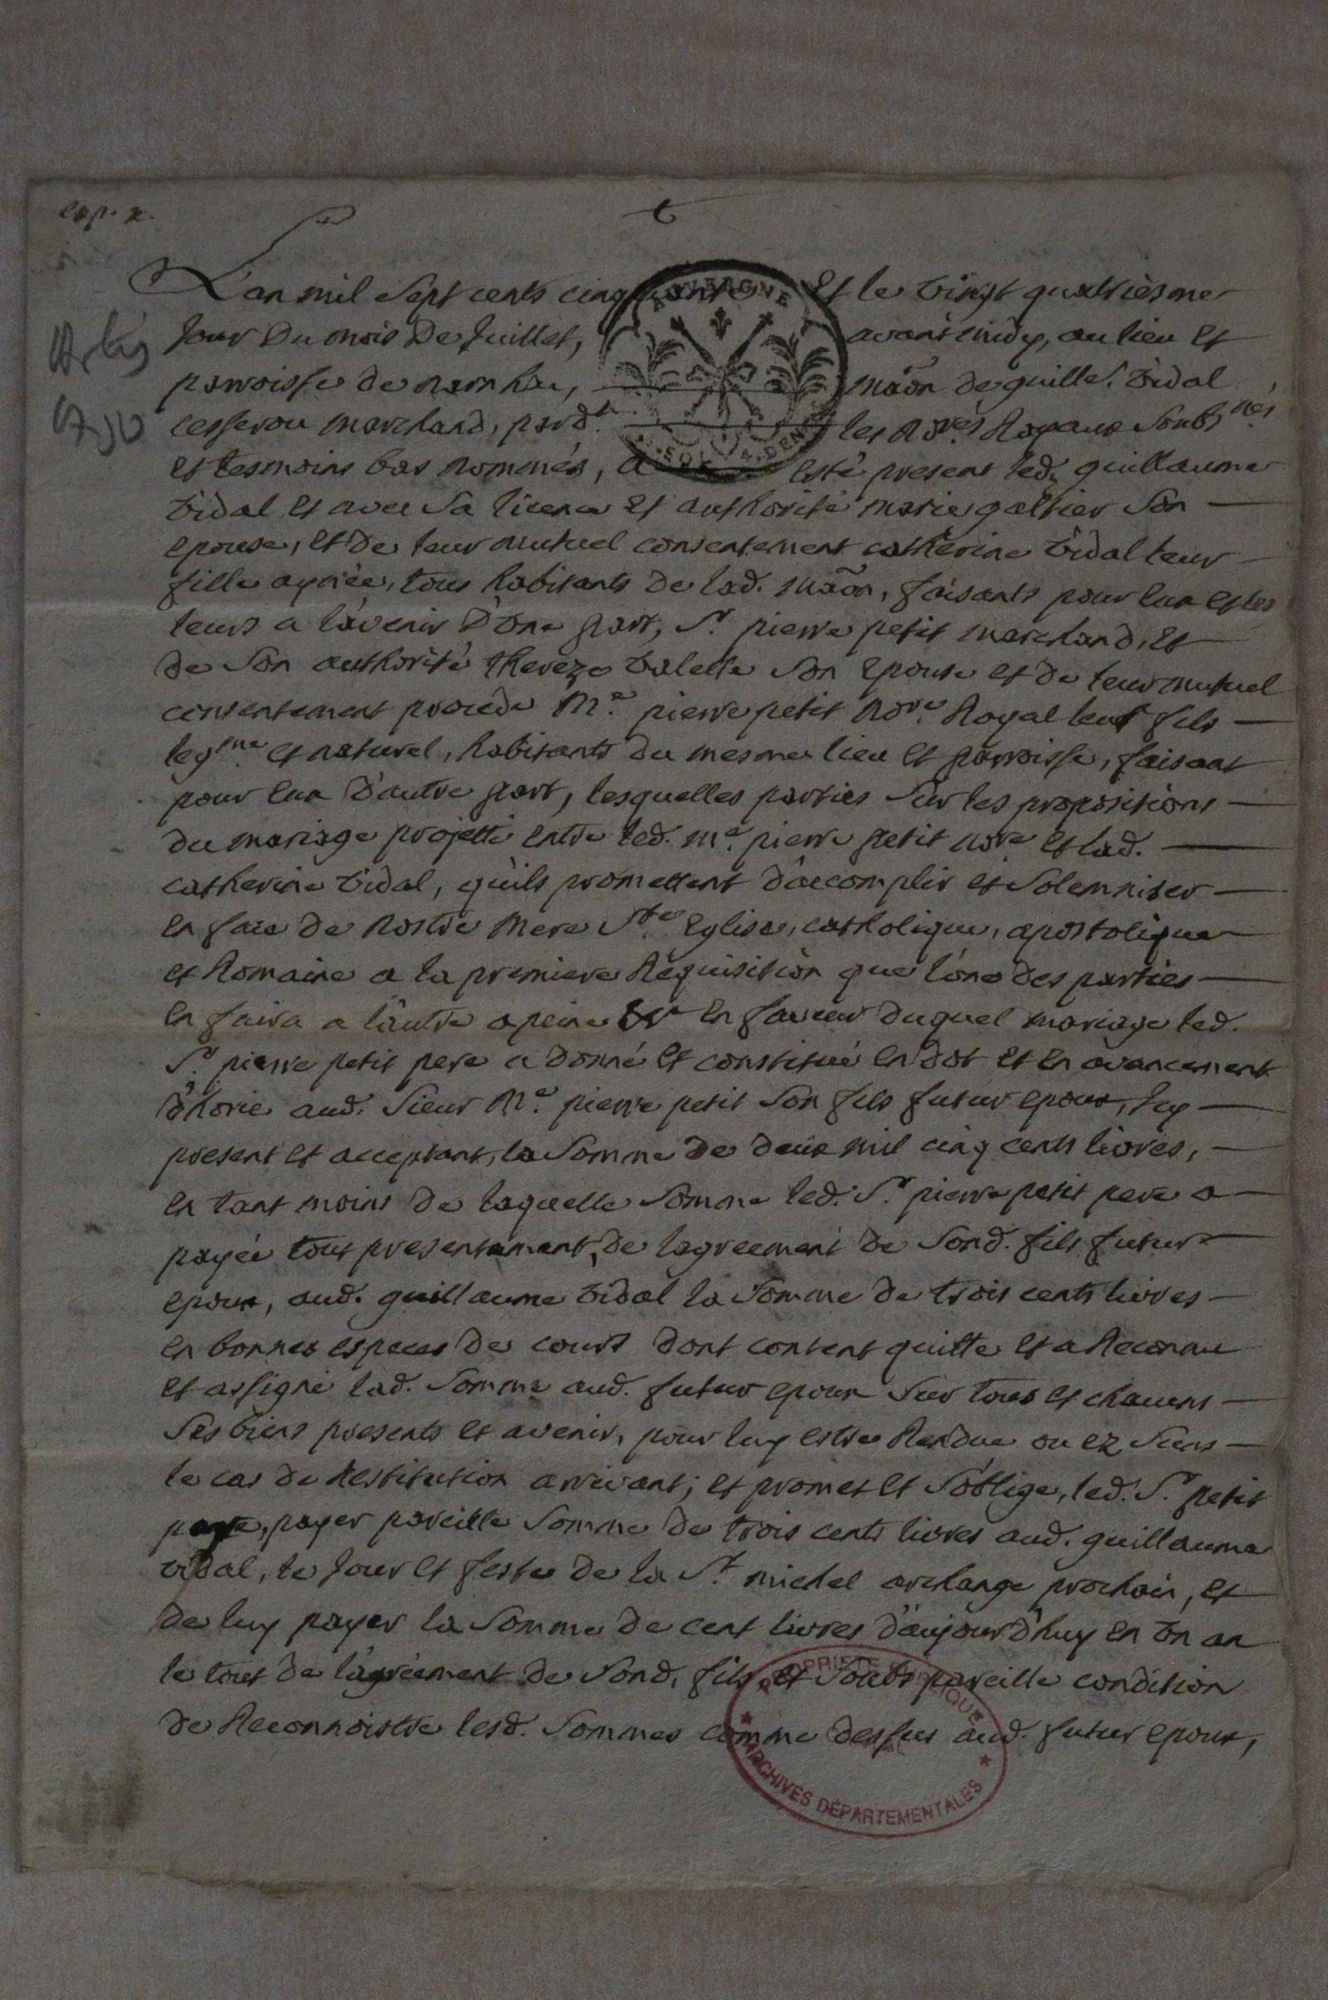 exp. x.
L'an mil sept cents cinquante Et le vingt quatriesme
Jour Du mois De Juillet, avant midy, au lieu et
parroisse de maon de guille.^t vidal
cesserou marchand, pard.^t les no.^res Royaux Soub.^nés
et tesmoins bas nommés, a esté present led. guillaume
vidal et avec sa licence et authorité marie galtier son
epouse, et de leur mutuel consentement catherine vidal leur
fille aynée, tous habitants de lad. maon, faisants pour eux et les
leurs a l'avenir d'une part, S.^r pierre petit marchand, et
de son authorité thereze valette son epouse et de leur mutuel
consentement procede M.^e pierre petit no.^re Royal leur fils
leg.^me et naturel, habitants du mesme lieu et parroisse, faisant
pour eux d'autre part, lesquelles parties sur les propositions
du mariage projetté entre led. m.^e pierre petit no.^re et lad.
catherine vidal, qu'ils promettent d'accomplir et solemniser
en face de nostre mere S.^te Eglise, catholique, apostolique
et Romaine a la premiere Requisition que l'une des parties
en faira a l'autre a peine &^a en faveur duquel mariage led.
S.^r pierre petit pere a donné et constitué en dot et en avancement
d'horie aud. Sieur M.^e pierre petit son fils futur epoux, luy
present et acceptant, la somme de deux mil cinq cents livres,
en tant moins de laquelle somme led. S.^r pierre petit pere a
payée tout presentement, de l'agreement de sond. fils futur
epoux, aud. guillaume vidal la somme de trois cents livres
en bonnes especes de cours dont content quitte et a Reconnu
et assigné lad. somme aud. futur epoux sur tous et chacuns
ses biens presents et avenir, pour luy estre Rendue ou ez siens
le cas de Restitution arrivant; et promet et s'oblige, led. S.^r petit
pere, payer pareille somme de trois cents livres aud. guillaume
vidal, le Jour et feste de la S.^t michel archange prochain, et
de luy payer la somme de cent livres d'aujourd'huy en un an
le tout de l'agréement de sond. fils, et soubs pareille condition
de Reconnoistre lesd. sommes comme dessus aud. futur epoux,
AUVERGNE
PROPRIETE PUBLIQUE
ARCHIVES DEPARTEMENTALES